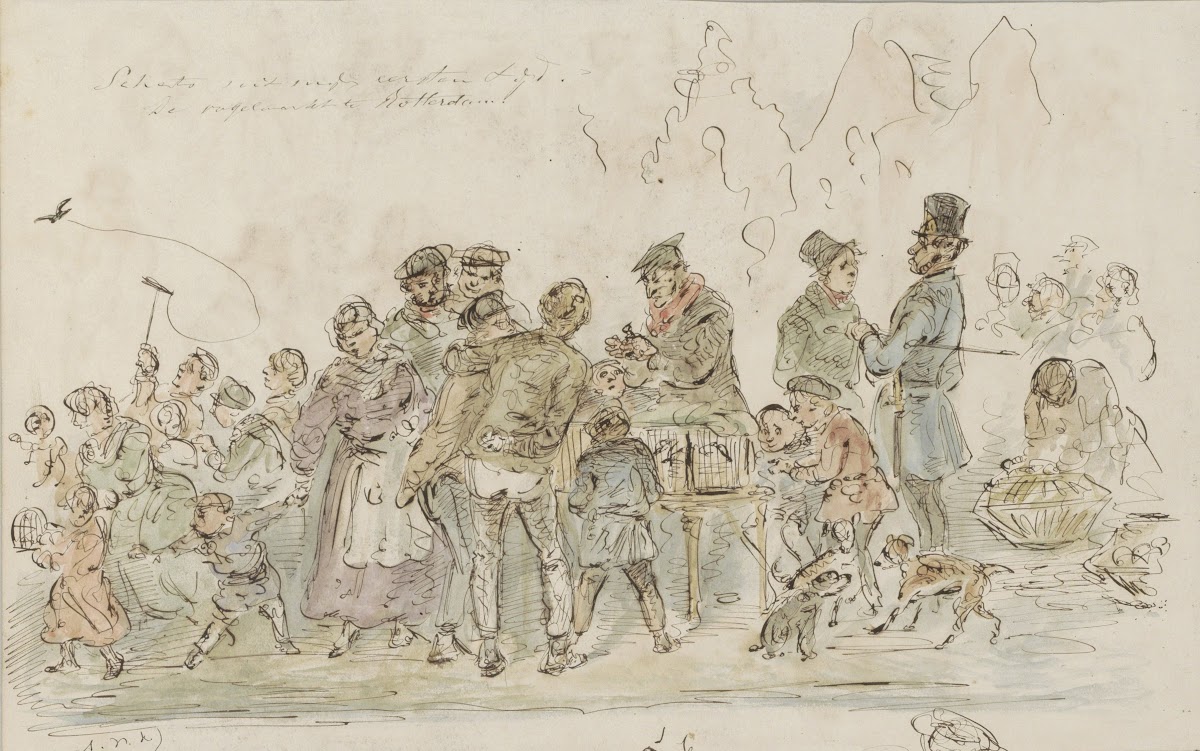 Schets uit mijn eersten tijd.
De vogelmarkt te Rotterdam.